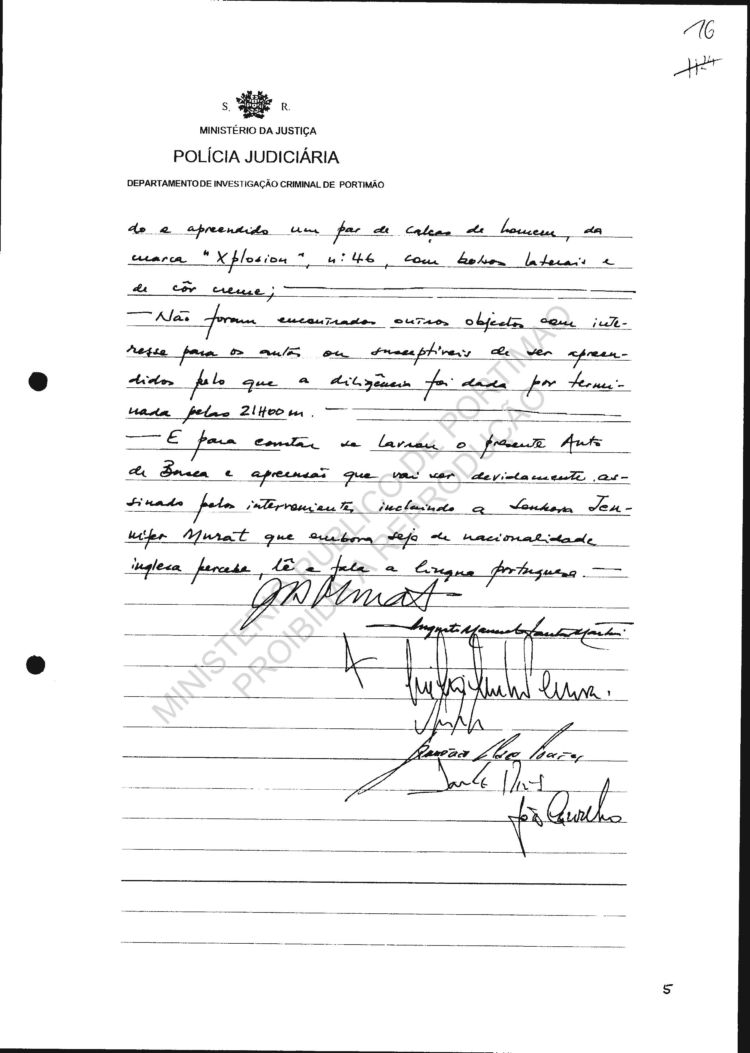 16
1124
S. R.
MINISTÉRIO DA JUSTIÇA
POLÍCIA JUDICIÁRIA
DEPARTAMENTO DE INVESTIGAÇÃO CRIMINAL DE PORTIMÃO
do e apreendido um par de calças de homem, da
marca "Xplosion", nº 46, com bolsos laterais e
de côr creme;
— Não foram encontrados outros objectos com inte-
resse para os autos ou susceptíveis de ser apreen-
didos pelo que a diligência foi dada por termi-
nada pelas 21H00m.
— E para constar se lavrou o presente Auto
de Busca e apreensão que vai ser devidamente as-
sinado pelos intervenientes, incluindo a Senhora Jen-
nifer Murat que embora seja de nacionalidade
inglesa percebe, lê e fala a lingua portuguesa. —
Murat
João Carvalho
MINISTÉRIO PUBLICO DE PORTIMAO
PROIBIDA A REPRODUÇÃO
5